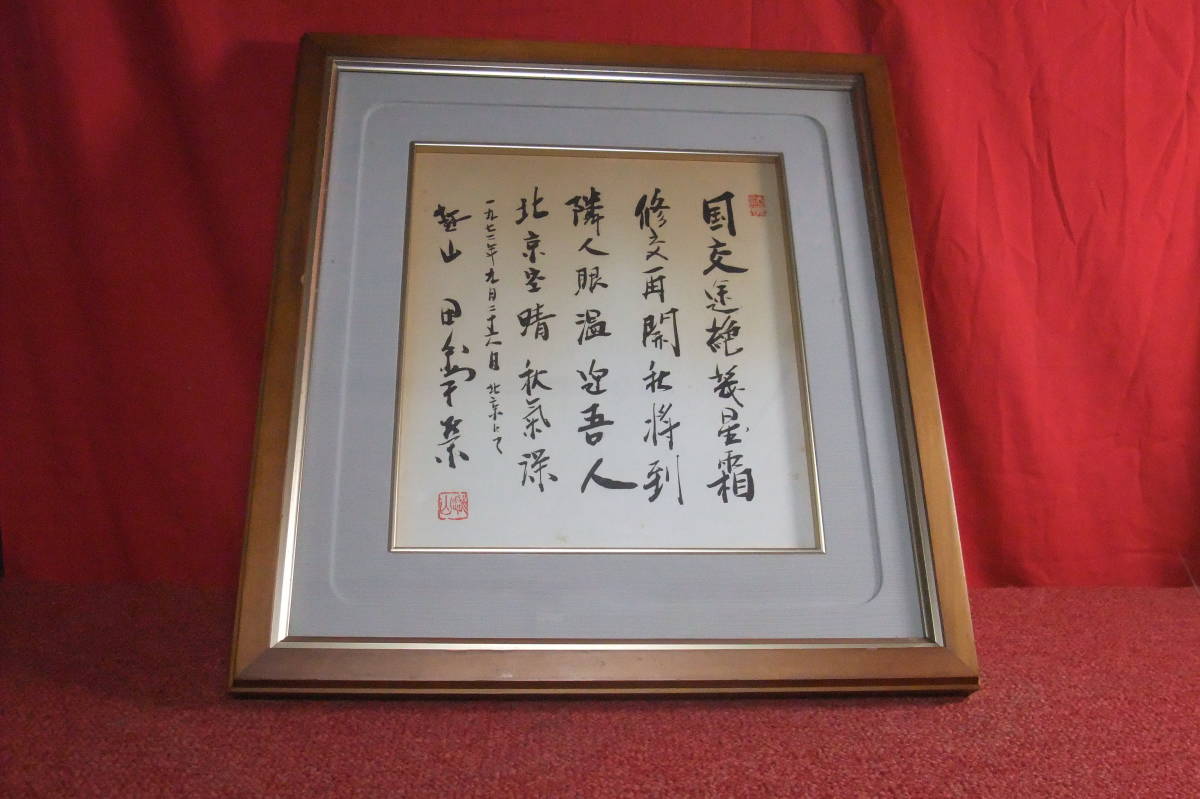 国交途絶幾星霜
修交再開秋将到
隣人眼温迎吾人
北京空晴秋気深
一九七二年九月二十五日 北京にて
越山 田中角栄